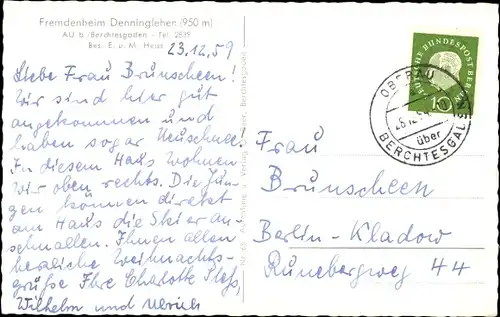 Fremdenheim Denninglehen (950 m)
AU b. Berchtesgaden - Tel. 2839
Bes. E. u. M. Heiss
23.12.59
Liebe Frau Brunscheen!
Wir sind hier gut
angekommen und
haben sogar Neuschnee!
In diesem Haus wohnen
wir oben rechts. Die Jun-
gen können direkt
am Haus die Skier an-
schnallen. Ihnen allen
herzliche Weihnachts-
grüße Ihre Charlotte
Wilhelm und Ulrich
DEUTSCHE BUNDESPOST BERLIN
10
OBERAU
über
BERCHTESGADEN
Frau
Brunscheen
Berlin-Kladow
Runebergweg 44